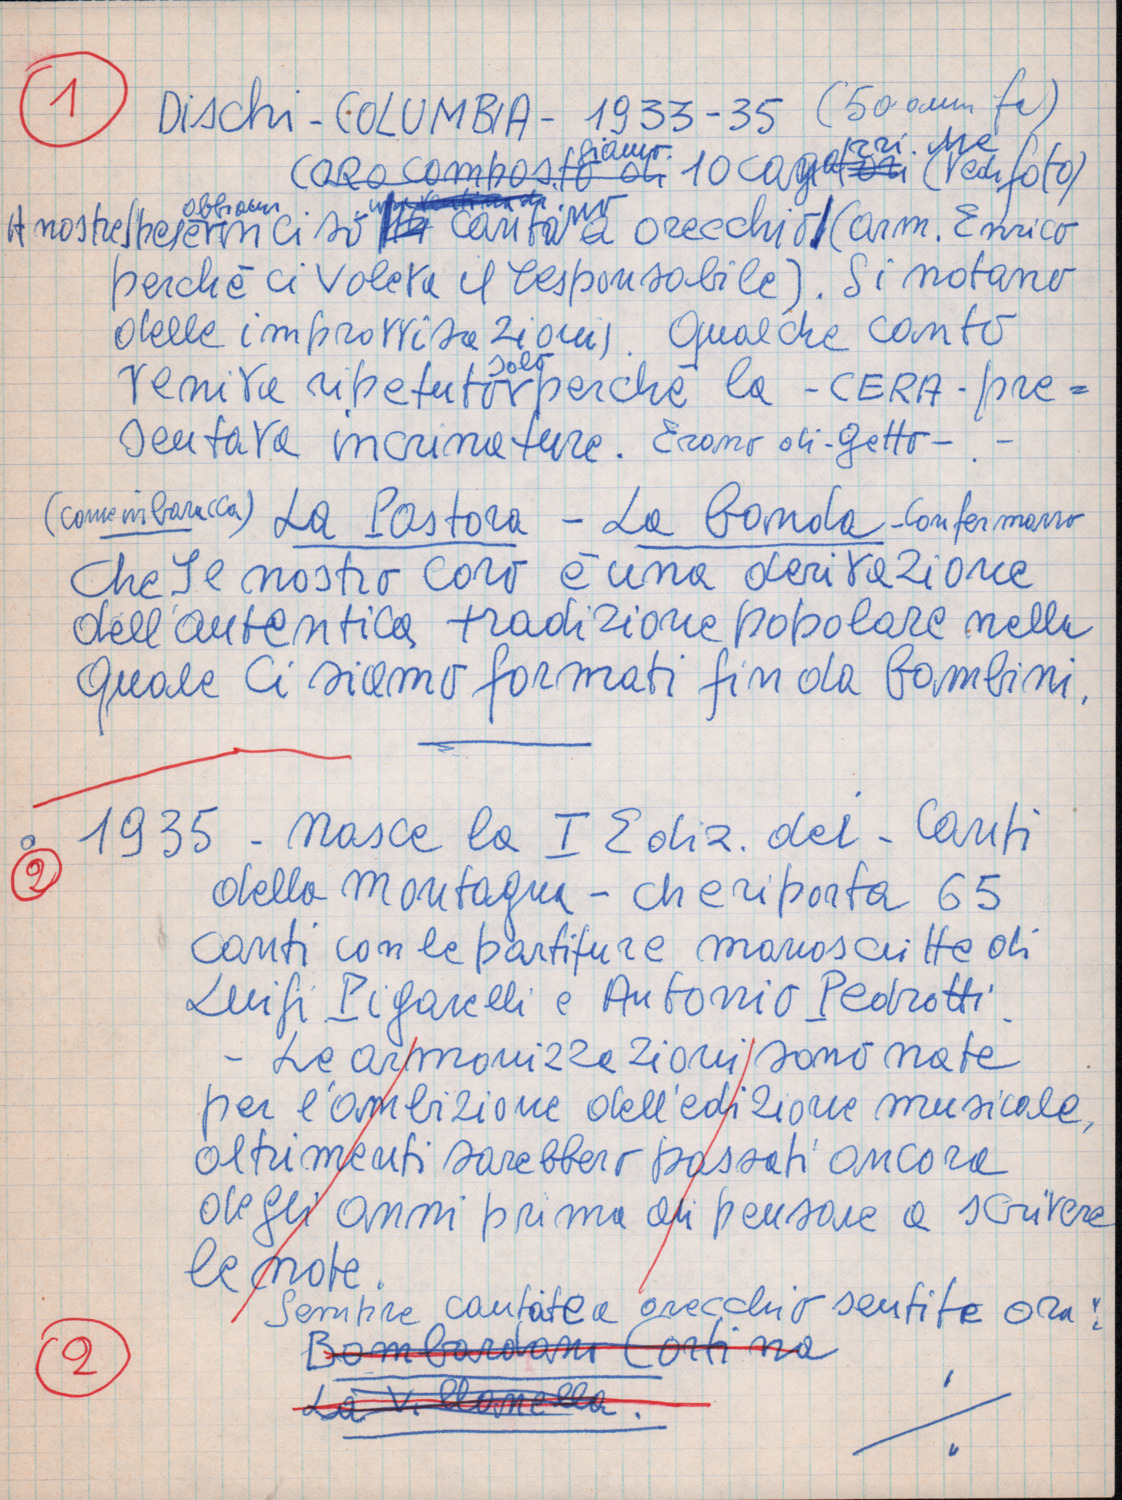 1
Dischi - COLUMBIA - 1933-35 (50 anni fa)
giamo.
coro composto di 10 (vedi foto)
abbiamo una ventina da
A nostre spese ci so canta a orecchio (arm. Enrico
perchè ci voleva il responsabile). Si notano
delle improvvisazioni. Qualche canto
solo
veniva ripetuto perchè la - CERA - pre=
sentava incrinature. Erano di-getto - . -
(come in baracca) La Pastora - La banda - confermano
che il nostro coro è una derivazione
dell'autentica tradizione popolare nella
quale ci siamo formati fin da bambini.
1935 - Nasce la I Ediz. dei - Canti
2
della montagna - che riporta 65
canti con le partiture manoscritte di
Luigi Pigarelli e Antonio Pedrotti.
- Le armonizzazioni sono nate
per l'ambizione dell'edizione musicale,
altrimenti sarebbero passati ancora
degli anni prima di pensare a scrivere
le note.
Sempre cantate a orecchio sentite ora:
2
Bombardano Cortina
La Villanella.